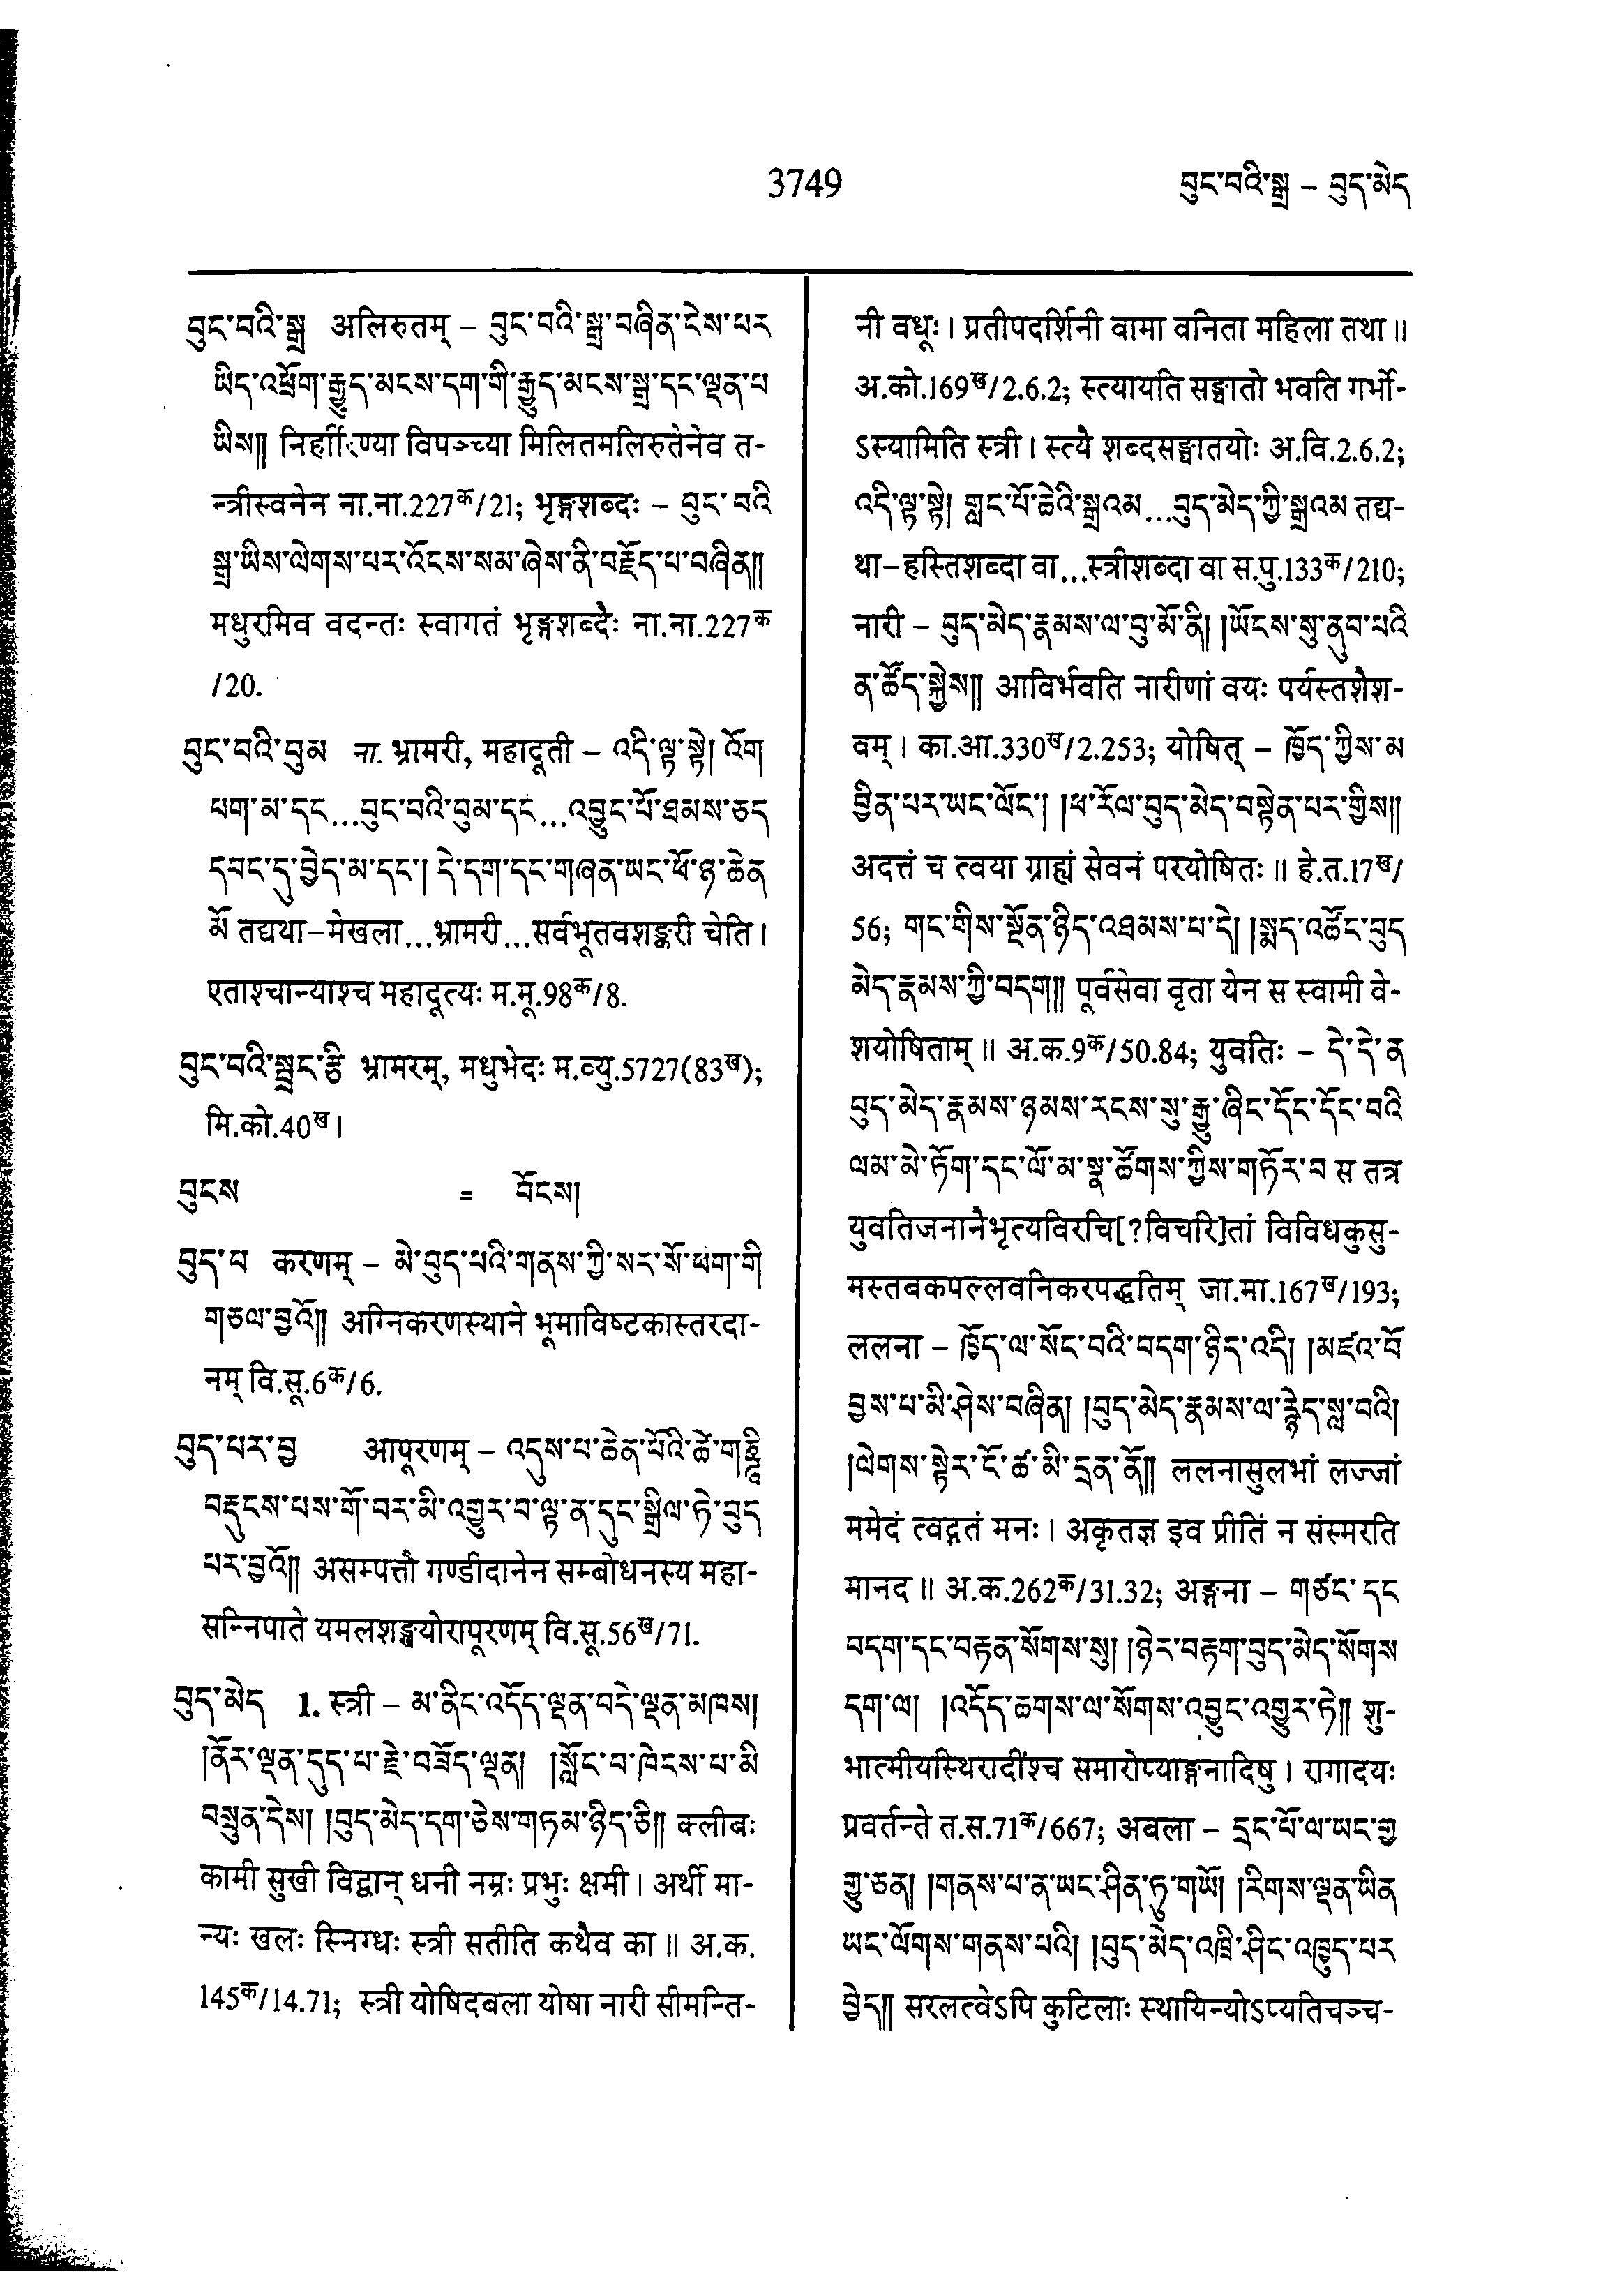 3749
བུང་བའི་སྒྲ – བུད་མེད
བུང་བའི་སྒྲ अलिरुतम् – བུང་བའི་སྒྲ་བཞིན་ངེས་པར
ཡིད་འཕྲོག་རྒྱུད་མངས་དག་གི་རྒྱུད་མངས་སྒྲ་དང་ལྡན་པ
ཡིས༎ विपञ्च्या मिलितमलिरुतेनेव त-
न्त्रीस्वनेन ना.ना.227क/21; भृङ्गशब्दः – བུང་བའི
སྒྲ་ཡིས་ལེགས་པར་འོངས་སམ་ཞེས་ནི་བརྗོད་པ་བཞིན༎
मधुरमिव वदन्तः स्वागतं भृङ्गशब्दैः ना.ना.227क
/20.
བུང་བའི་བུམ ना. भ्रामरी, महादूती – འདི་ལྟ་སྟེ། འོག
པག་མ་དང...བུང་བའི་བུམ་དང...འབྱུང་པོ་ཐམས་ཅད
དབང་དུ་བྱེད་མ་དང་། དེ་དག་དང་གཞན་ཡང་ཕོ་ཉ་ཆེན
མོ तद्यथा–मेखला...भ्रामरी...सर्वभूतवशङ्करी चेति।
एताश्चान्याश्च महादूत्यः म.मू.98क/8.
བུང་བའི་སྦྲང་རྩི भ्रामरम्, मधुभेदः म.व्यु.5727(83ख);
मि.को.40ख।
བུངས = བོངས།
བུད་པ करणम् – མེ་བུད་པའི་གནས་ཀྱི་སར་སོ་ཕག་གི
གཅལ་བྱའོ༎ अग्निकरणस्थाने भूमाविष्टकास्तरदा-
नम् वि.सू.6क/6.
བུད་པར་བྱ आपूरणम् – འདུས་པ་ཆེན་པོའི་ཚེ་གཎྜཱི
བརྡུངས་པས་གོ་བར་མི་འགྱུར་བ་ལྟ་ན་དུང་སྒྲིལ་ཏེ་བུད
པར་བྱའོ༎ असम्पत्तौ गण्डीदानेन सम्बोधनस्य महा-
सन्निपाते यमलशङ्खयोरापूरणम् वि.सू.56ख/71.
བུད་མེད 1. स्त्री – མ་ནིང་འདོད་ལྡན་བདེ་ལྡན་མཁས།
།ནོར་ལྡན་དུད་པ་རྗེ་བཟོད་ལྡན། །སློང་བ་ཁེངས་པ་མི
བསྲུན་དེས། །བུད་མེད་དག་ཅེས་གཏམ་ཉིད་ཅི༎ क्लीबः
कामी सुखी विद्वान् धनी नम्रः प्रभुः क्षमी। अर्थी मा-
न्यः खलः स्निग्धः स्त्री सतीति कथैव का॥ अ.क.
145क/14.71; स्त्री योषिदबला योषा नारी सीमन्ति-
नी वधूः। प्रतीपदर्शिनी वामा वनिता महिला तथा॥
अ.को.169ख/2.6.2; स्त्यायति सङ्घातो भवति गर्भो-
ऽस्यामिति स्त्री। स्त्यै शब्दसङ्घातयोः अ.वि.2.6.2;
འདི་ལྟ་སྟེ། གླང་པོ་ཆེའི་སྒྲའམ...བུད་མེད་ཀྱི་སྒྲའམ तद्य-
था–हस्तिशब्दा वा...स्त्रीशब्दा वा स.पु.133क/210;
नारी – བུད་མེད་རྣམས་ལ་བུ་མོ་ནི། །ཡོངས་སུ་ནུབ་པའི
ན་ཚོད་སྐྱེས༎ आविर्भवति नारीणां वयः पर्यस्तशैश-
वम्। का.आ.330ख/2.253; योषित् – ཁྱོད་ཀྱིས་མ
བྱིན་པར་ཡང་ལོང་། །ཕ་རོལ་བུད་མེད་བསྟེན་པར་གྱིས༎
अदत्तं च त्वया ग्राह्यं सेवनं परयोषितः॥ हे.त.17ख/
56; གང་གིས་སྔོན་ཉིད་འཐམས་པ་དེ། །སྨད་འཚོང་བུད
མེད་རྣམས་ཀྱི་བདག༎ पूर्वसेवा वृता येन स स्वामी वे-
शयोषिताम्॥ अ.क.9क/50.84; युवतिः – དེ་དེ་ན
བུད་མེད་རྣམས་ཉམས་རངས་སུ་རྒྱུ་ཞིང་དོང་དོང་བའི
ལམ་མེ་ཏོག་དང་ལོ་མ་སྣ་ཚོགས་ཀྱིས་གཏོར་བ स तत्र
युवतिजनानैभृत्यविरचि[?विचरि]तां विविधकुसु-
मस्तबकपल्लवनिकरपद्धतिम् जा.मा.167ख/193;
ललना – ཁྱོད་ལ་སོང་བའི་བདག་ཉིད་འདི། །མཛའ་བོ
བྱས་པ་མི་ཤེས་བཞིན། །བུད་མེད་རྣམས་ལ་རྙེད་སླ་བའི།
།ལེགས་སྟེར་ངོ་ཚ་མི་དྲན་ནོ༎ ललनासुलभां लज्जां
ममेदं त्वद्गतं मनः। अकृतज्ञ इव प्रीतिं न संस्मरति
मानद॥ अ.क.262क/31.32; अङ्गना – གཙང་དང
བདག་དང་བརྟན་སོགས་སུ། །ཉེར་བརྟག་བུད་མེད་སོགས
དག་ལ། །འདོད་ཆགས་ལ་སོགས་འབྱུང་འགྱུར་ཏེ༎ शु-
भात्मीयस्थिरादींश्च समारोप्याङ्गनादिषु। रागादयः
प्रवर्तन्ते त.स.71क/667; अबला – དྲང་པོ་ལ་ཡང་གྱ
གྱུ་ཅན། །གནས་པ་ན་ཡང་ཤིན་ཏུ་གཡོ། །རིགས་ལྡན་ཡིན
ཡང་ལོགས་གནས་པའི། །བུད་མེད་འཁྲི་ཤིང་འཁྱུད་པར
བྱེད༎ सरलत्वेऽपि कुटिलाः स्थायिन्योऽप्यतिचञ्च-